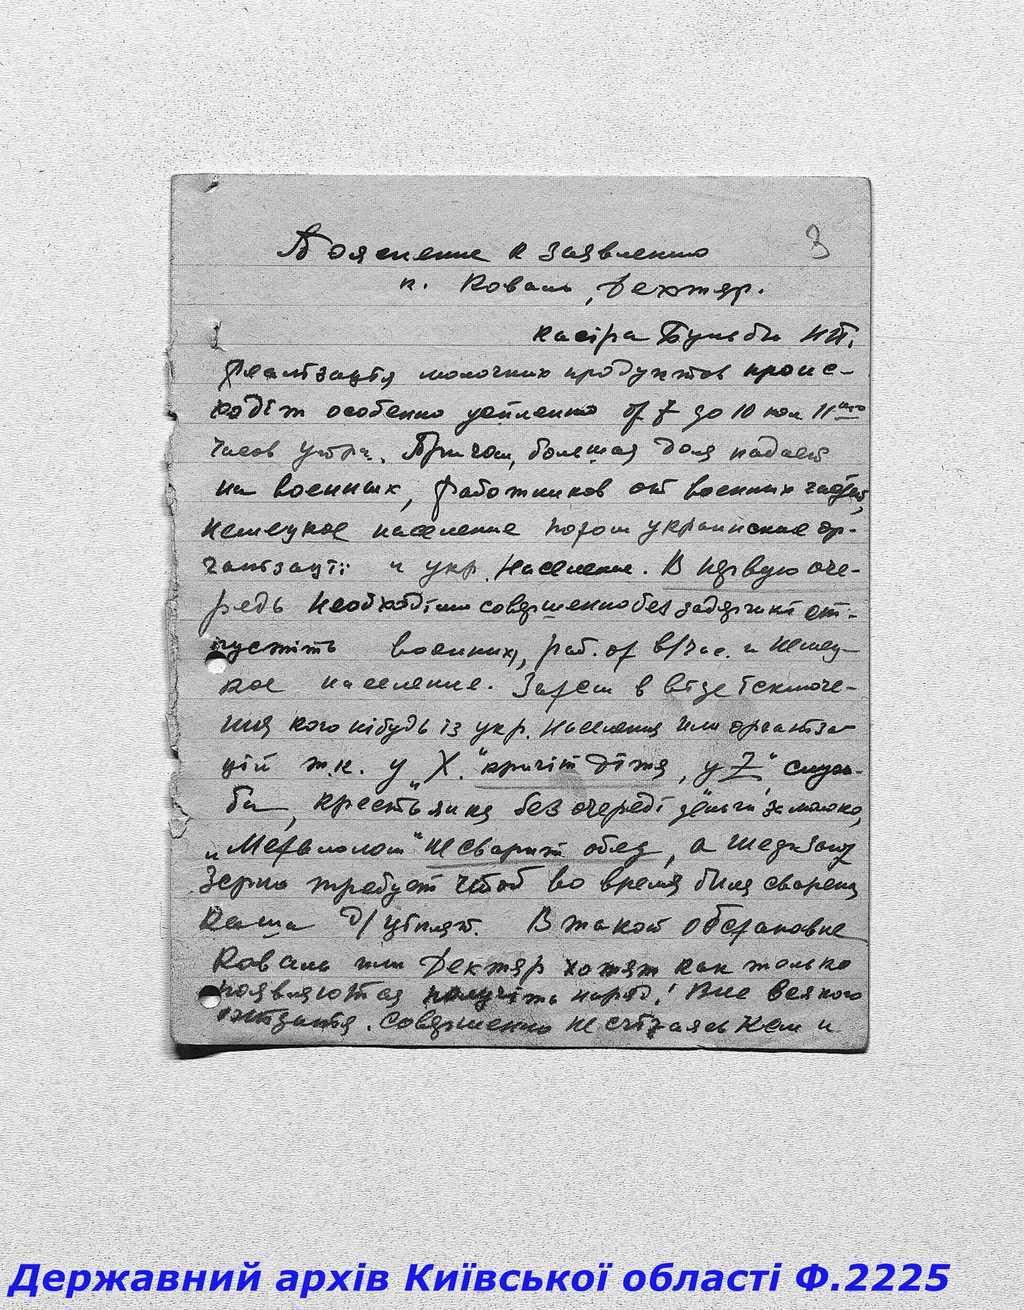 Пояснение к заявлению
п. Коваль, Дехтяр.
касіра Бульби НП.
Реалізація молочних продуктов проис-
ходіт особенно усиленно от 7 до 10 или 11
часов утра. Причом, большая доля падает
на военных, работников от военных частей,
немецкое население потом украинские ор-
ганізаціі и укр. население. В первую оче-
редь необходімо совершенно без задержки от-
пустіть военних, раб. от в/час. и немец-
кое население. Затем в віде ісключе-
ния кого нібудь із укр. населения или організа-
цій т.к. у „X." кричіт дітя, у „Z" служ-
ба, крестьянка без очереді деньги за молоко,
и „Металолом" не сварит обед, а
Зерно требует чтоб во время была сварена
каша д/ціплят. В такой обстановке
Коваль или Дехтяр хотят как только
появляются получіть наряд! Вне всякого
совершенно не счітаясь кем и
8
Державний архів Київської області Ф.2225